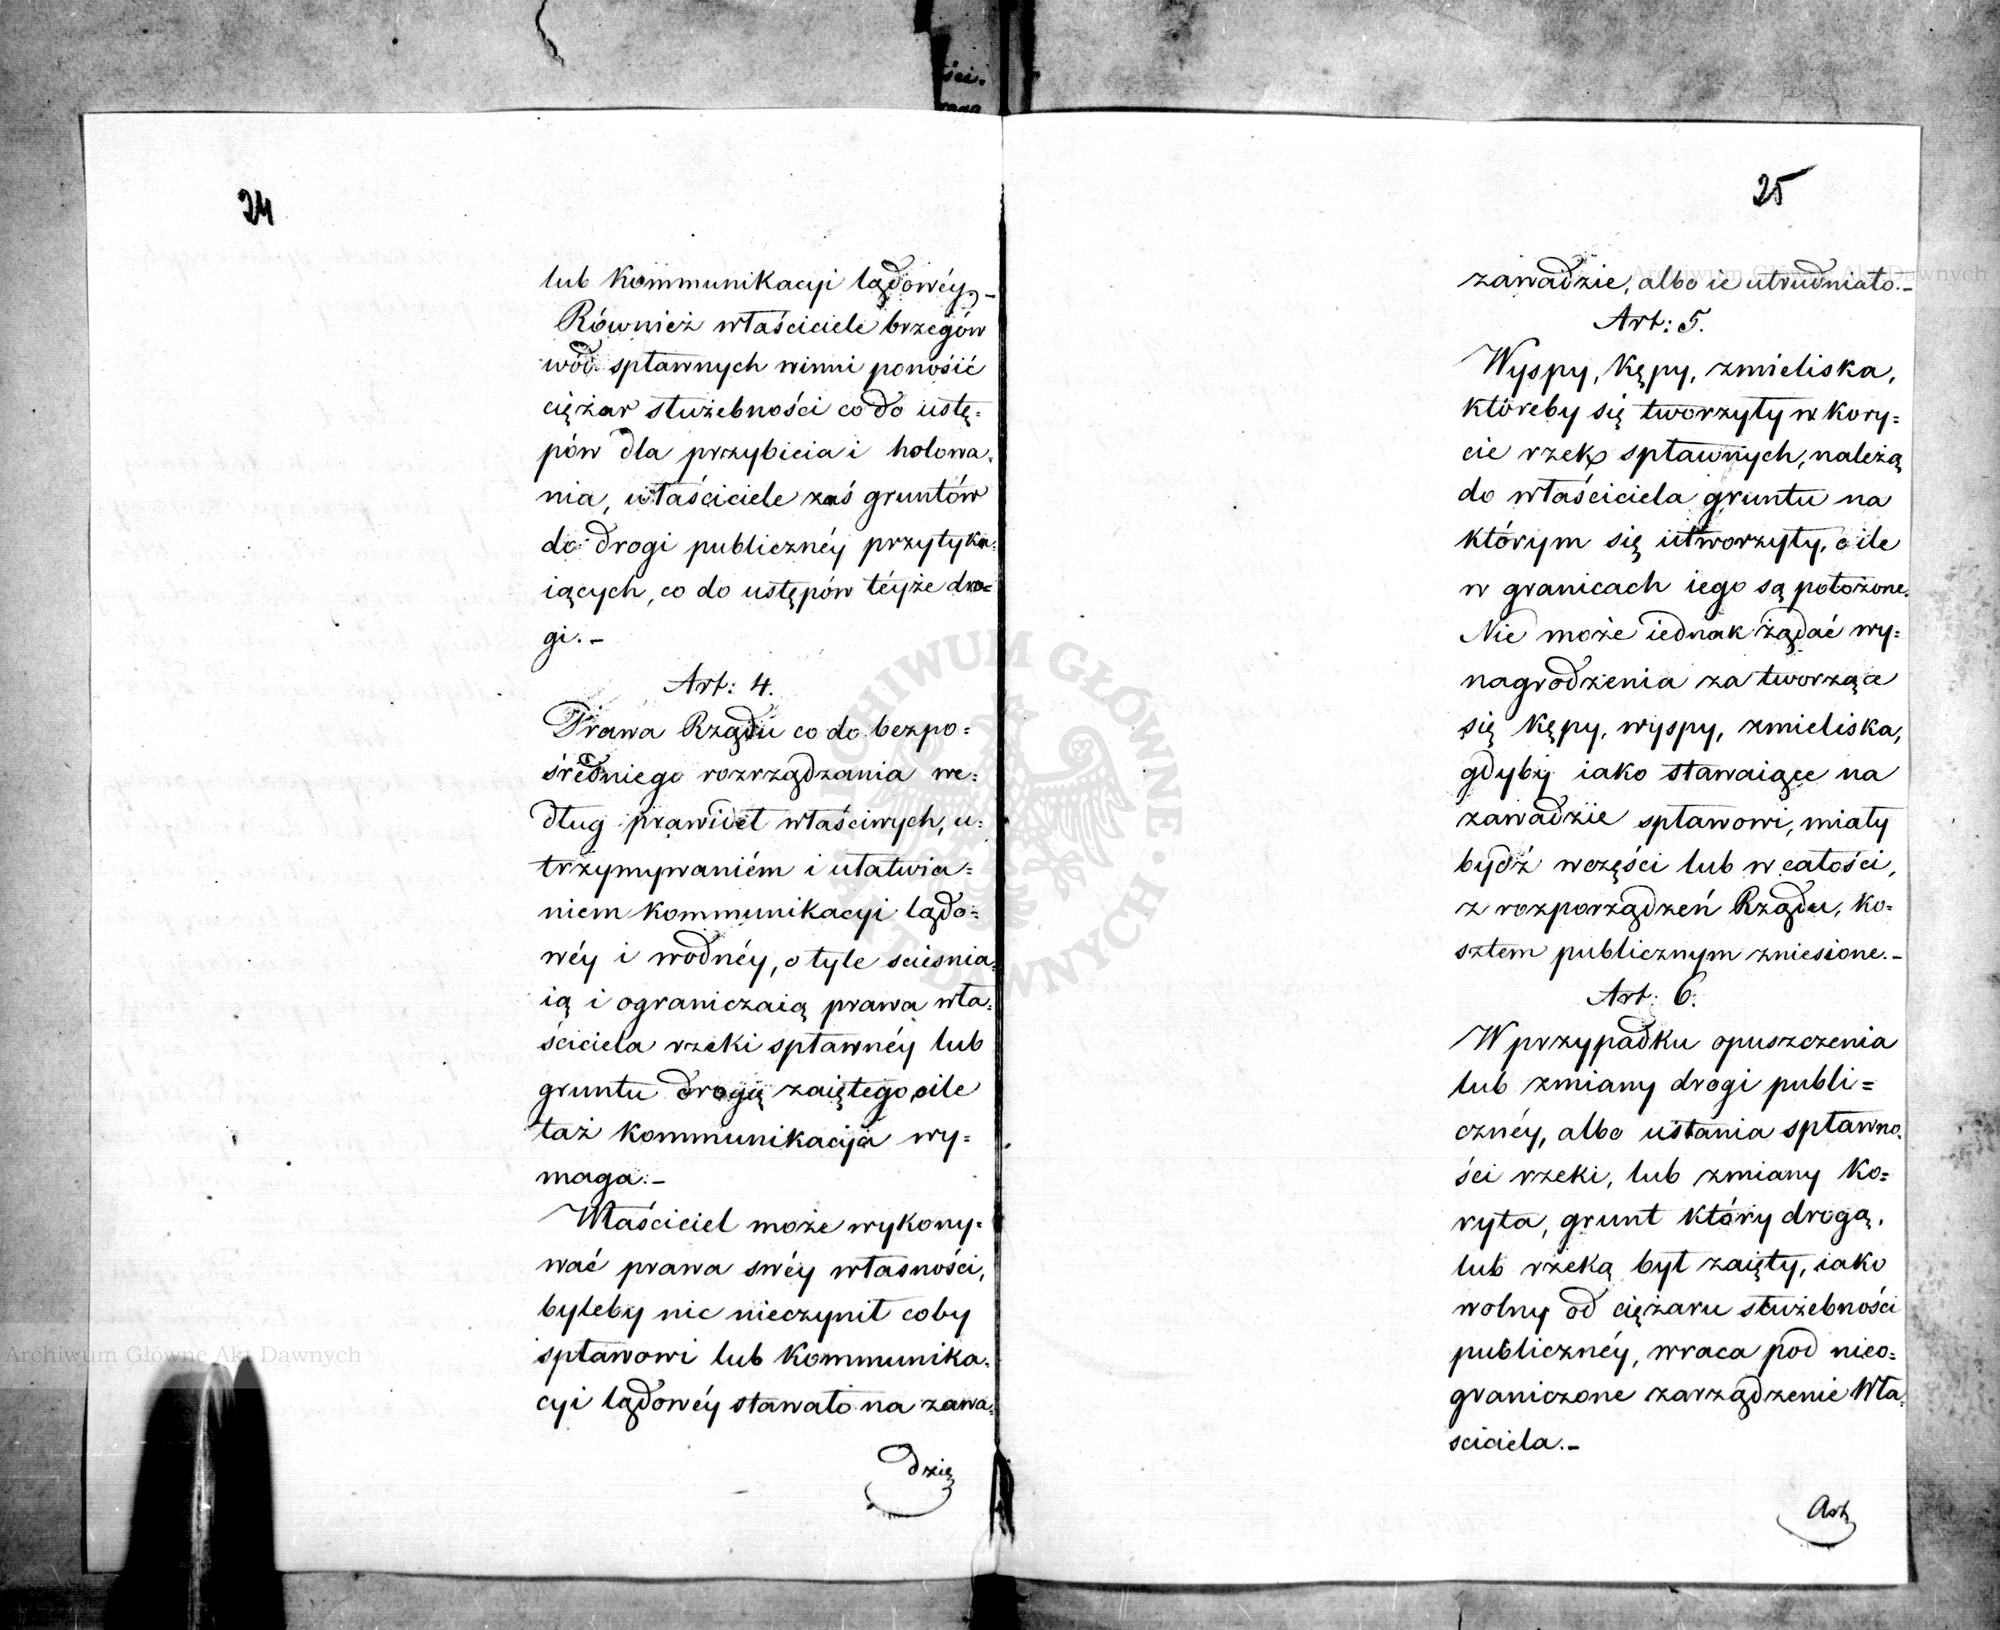 24
lub Kommunikacyi lądowéy.–
Również właściciele brzegów
wód spławnych winni ponosić
ciężar służebności co do ustę=
pów dla przybicia i holowa=
nia, właściciele zaś gruntów
do drogi publicznéy przytyka=
iących, co do ustępów téyże dro=
gi.–
Art: 4.
Prawa Rządu co do bezpo=
średniego rozrządzania we=
dług prawideł właściwych, u=
trzymywaniém i ułatwia=
niem kommunikacyi lądo=
wéy i wodnéy, o tyle scieśnia=
ią i ograniczaią prawa wła=
ściciela rzeki spławnéy lub
gruntu drogą zaiętego, o ile
taż kommunikacyja wy=
maga.–
Właściciel może wykony=
wać prawa swéy własności,
byleby nic nieczynił coby
spławowi lub Kommunika=
cyi lądowéy stawało na zawa=
dzie
25
zawadzie, albo ie utrudniało.–
Art: 5.
Wyspy, Kępy, zmieliska,
któreby się tworzyły w kory=
cie rzek spławnych, należą
do właściciela gruntu na
którym się utworzyły, o ile
w granicach iego są położone.
Nie może iednak żądać wy=
nagrodzenia za tworzące
się Kępy, wyspy, zmieliska,
gdyby iako stawaiące na
zawadzie spławowi, miały
bydź w części lub w całości,
z rozporządzeń Rządu, ko=
sztem publicznym zniesione.–
Art: 6.
W przypadku opuszczenia
lub zmiany drogi publi=
cznéy, albo ustania spławno=
ści rzeki, lub zmiany Ko=
ryta, grunt który drogą,
lub rzeką był zaięty, iako
wolny od ciężaru służebności
publicznéy, wraca pod nieo=
graniczone zarządzenie Wła=
sciciela.–
Art
Archiwum Główne Akt Dawnych
Archiwum Główne Akt Dawnych
ARCHIWUM GŁÓWNE AKT DAWNYCH